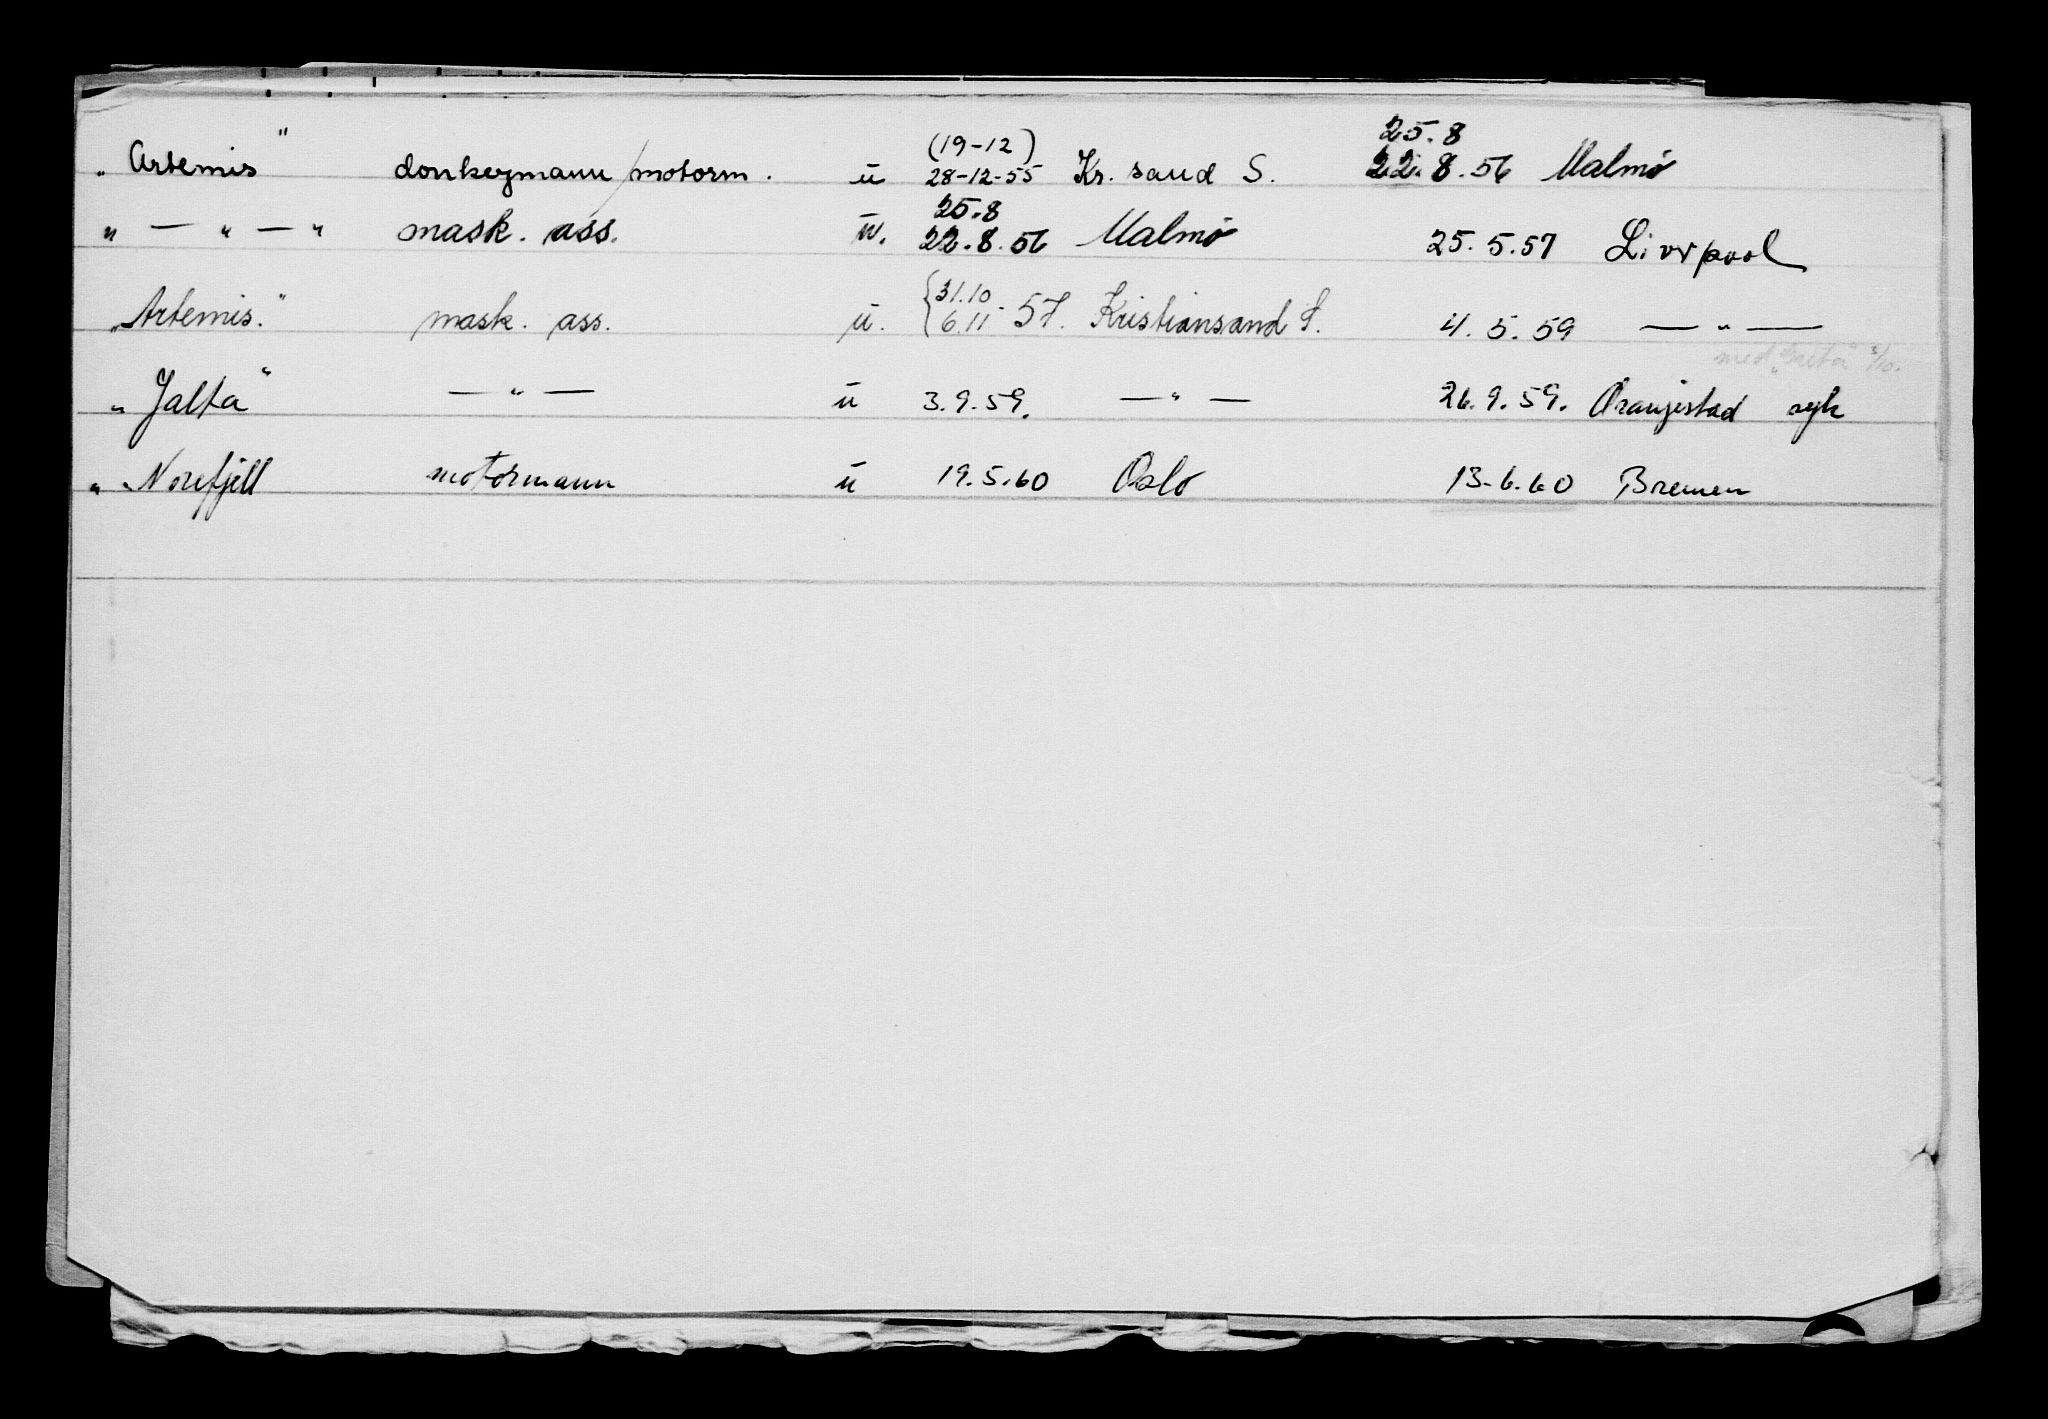 „Artemis" donkeymann/motorm. u (19-12) 28-12-55 Kr. sand S. 25.8 22.8.56 Malmö
" — " — " mask. ass. u. 25.8 22.8.56 Malmö 25.5.57 Livrpool
„Artemis." mask. ass. u. {31.10 6.11 57. Kristiansand S. 4.5.59 — " —
med „Greta"
„Jalta" — " — u 3.9.59. — " — 26.9.59. Oranjestad syk
„Norefjell motormann u 19.5.60 Oslo 13-6.60 Bremen